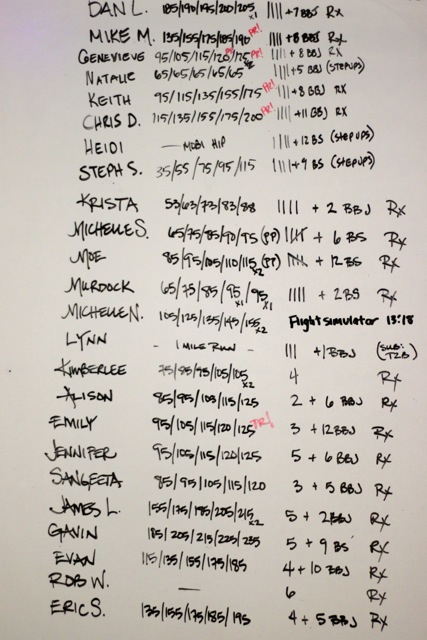 DAN L. 185/190/195/200/205 x1 |||| +7 BBJ Rx
MIKE M. 135/155/175/185/190 PR! |||| +8 BBJ Rx
GENEVIEVE 95/105/115/120/125 PR! |||| + 8 BBJ Rx
NATALIE 65/65/65/65/65 |||| +5 BBJ (STEPUPS)
KEITH 95/115/135/155/175 PR! |||| +8 BBJ RX
CHRIS D. 115/135/155/175/200 PR! |||| +11 BBJ RX
HEIDI — MOBI HIP |||| +12 BS (STEP UPS)
STEPH S. 35/55/75/95/115 |||| +9 BS (STEPUPS)
KRISTA 53/63/73/83/88 |||| + 2 BBJ Rx
MICHELLE S. 65/75/85/90/95 (PP) |||| + 6 BS Rx
MOE 85/95/105/110/115 x2 (PP) |||| + 12 BS Rx
MURDOCK 65/75/85/95 x1/95 x1 |||| + 2 BS Rx
MICHELLE N. 105/125/135/145/155 x2 Flight simulator 13:18
LYNN - 1 MILE RUN - ||| +1 BBJ (SUB: T2B)
KIMBERLEE 75/85/95/105/105 x2 4 Rx
ALISON 85/95/105/115/125 2 + 6 BBJ Rx
EMILY 95/105/115/120/125 PR! 3 + 12 BBJ Rx
JENNIFER 95/105/115/120/125 5 + 6 BBJ Rx
SANGEETA 85/95/105/115/120 3 + 5 BBJ Rx
JAMES L. 155/175/195/205/215 x2 5 + 2 BBJ Rx
GAVIN 185/205/215/225/235 5 + 9 BS Rx
EVAN 115/135/155/175/185 4 + 10 BBJ Rx
ROB W. — 6 Rx
ERIC S. 135/155/175/185/195 4 + 5 BBJ Rx